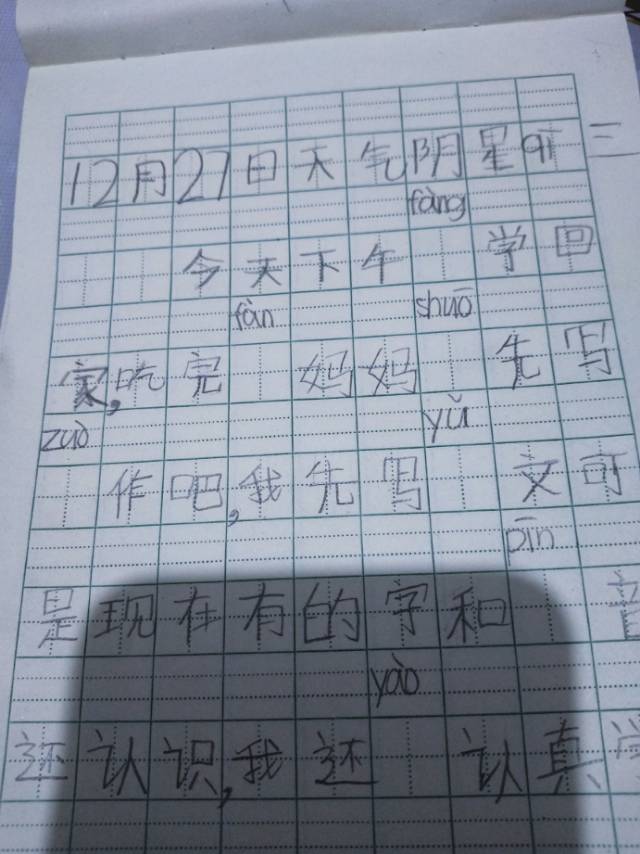 12月27日天气阴星qi三
fàng
今天下午 学回
fàn shuō
家,吃完 妈妈 先写
zuò yǔ
作吧,我先写 文可
pīn
是现在有的字和 音
yào
还认识,我还 认真